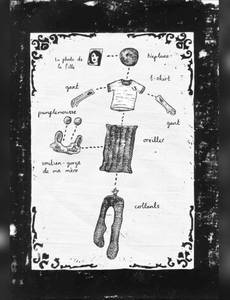 La photo de
la fille
t-shirt
gant
gant
pamplemousse
oreiller
soutien-gorge
de ma mère
collants